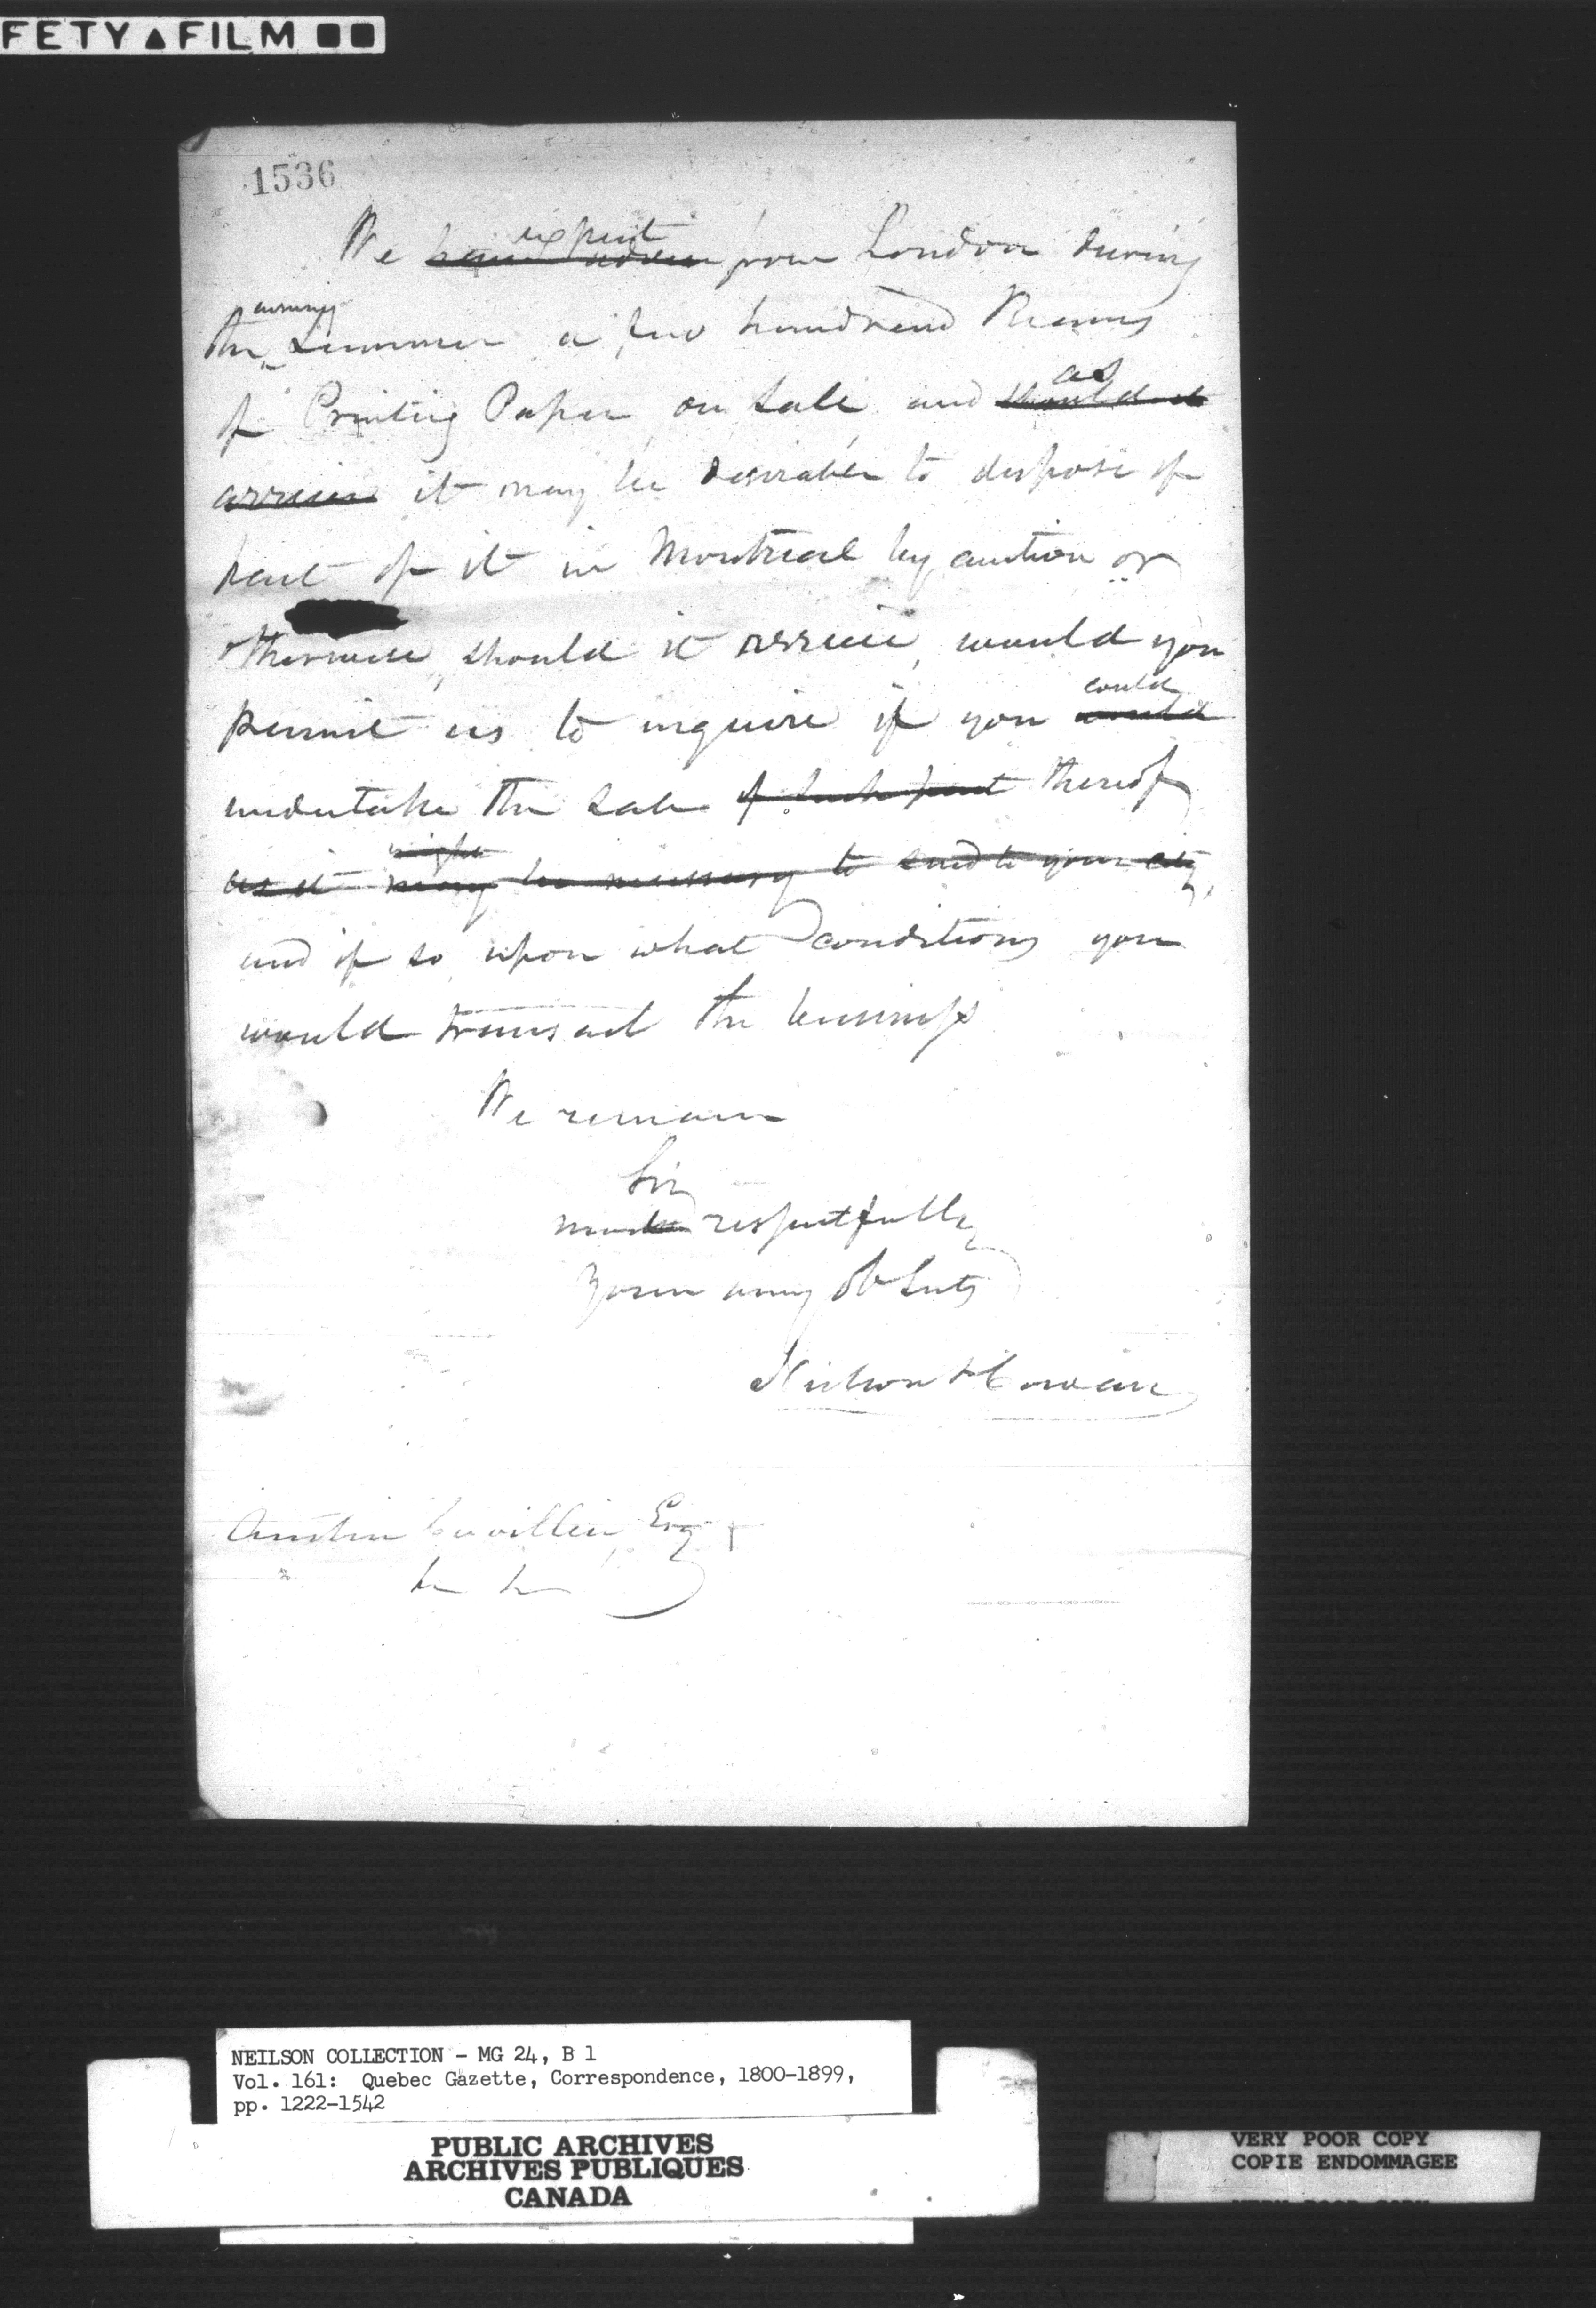 FETY FILM
1536
We have advice expect from London during
the ensuing Summer a few hundred Reams
of Printing Paper on Sale and should it as
arrive it may be desirable to dispose of
part of it in Montreal by auction or
otherwise, should it arrive, would you
permit us to inquire if you would could
undertake the Sale of such part thereof
as it may might be necessary to send to your city,
and if so upon what conditions you
would transact the business
We remain
Sir
respectfully
Your ob Svts
Neilson & Cowan
Austin Cuvillier, Esqr
NEILSON COLLECTION - MG 24, B 1
Vol. 161: Quebec Gazette, Correspondence, 1800-1899,
pp. 1222-1542
PUBLIC ARCHIVES
ARCHIVES PUBLIQUES
CANADA
VERY POOR COPY
COPIE ENDOMMAGEE